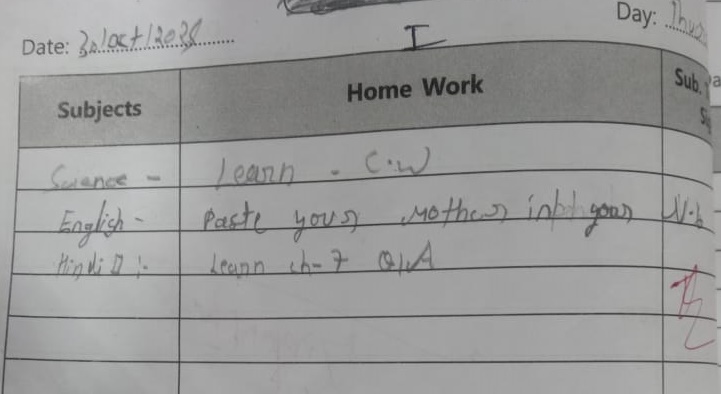 Date: 30/oct/2025 Day: Thurs
I
Subjects Home Work Sub.
Science - Learn - C.W
English - Paste your Mothers in your N.b
Hindi II :- Learn ch-7 Q/A